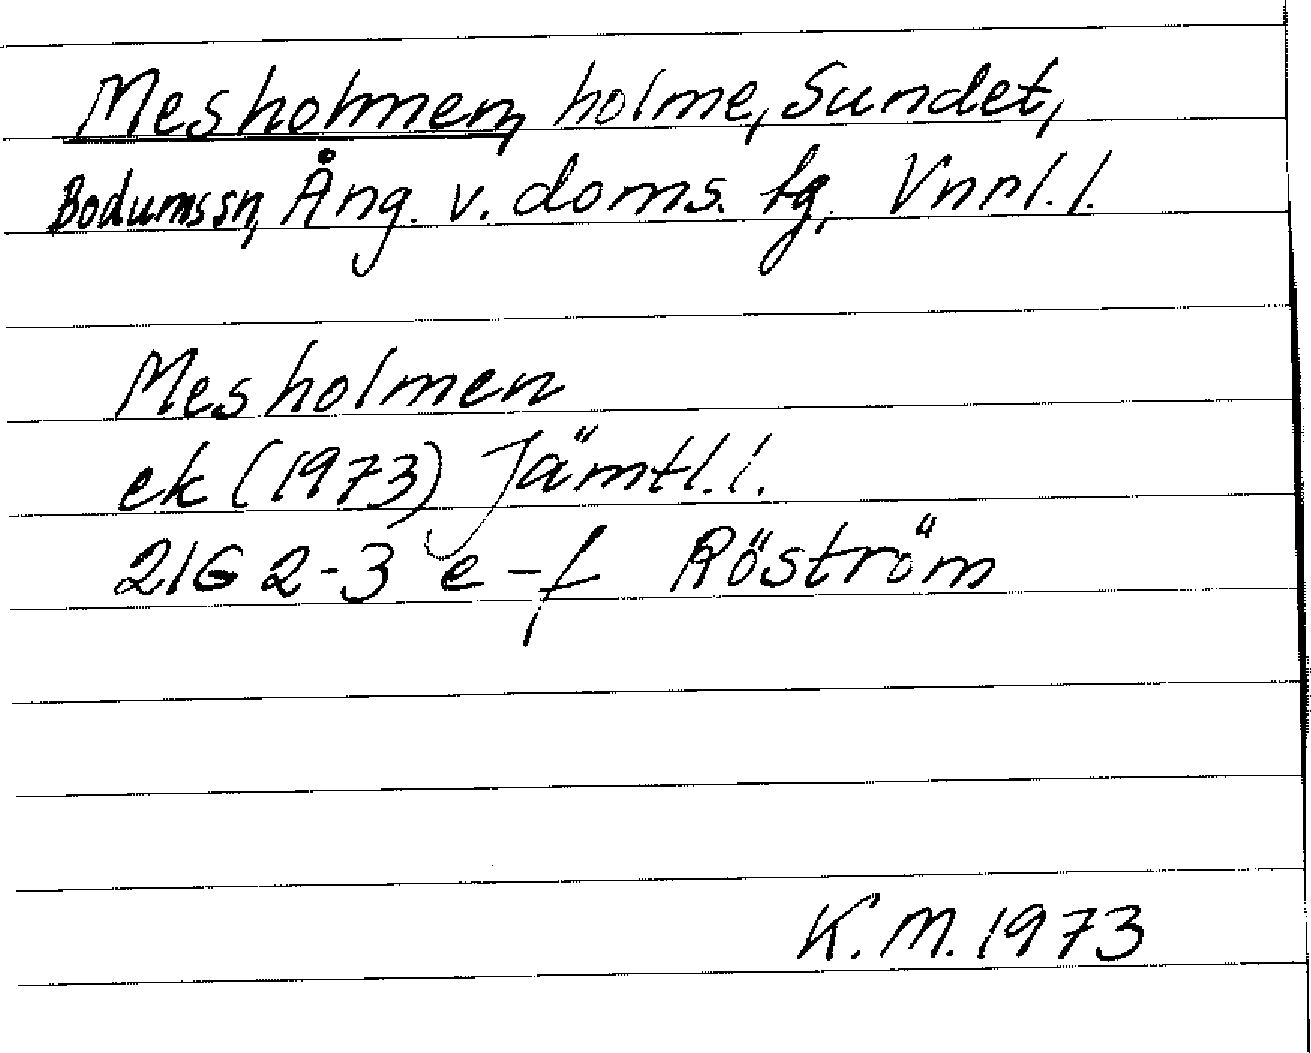 Mesholmen, holme, Sundet,
Bodumssn, Ång. v. doms. tg, Vnrl.l.
Mesholmen
ek (1973) Jämtl.l.
21G 2-3 e-f Röström
K.M. 1973